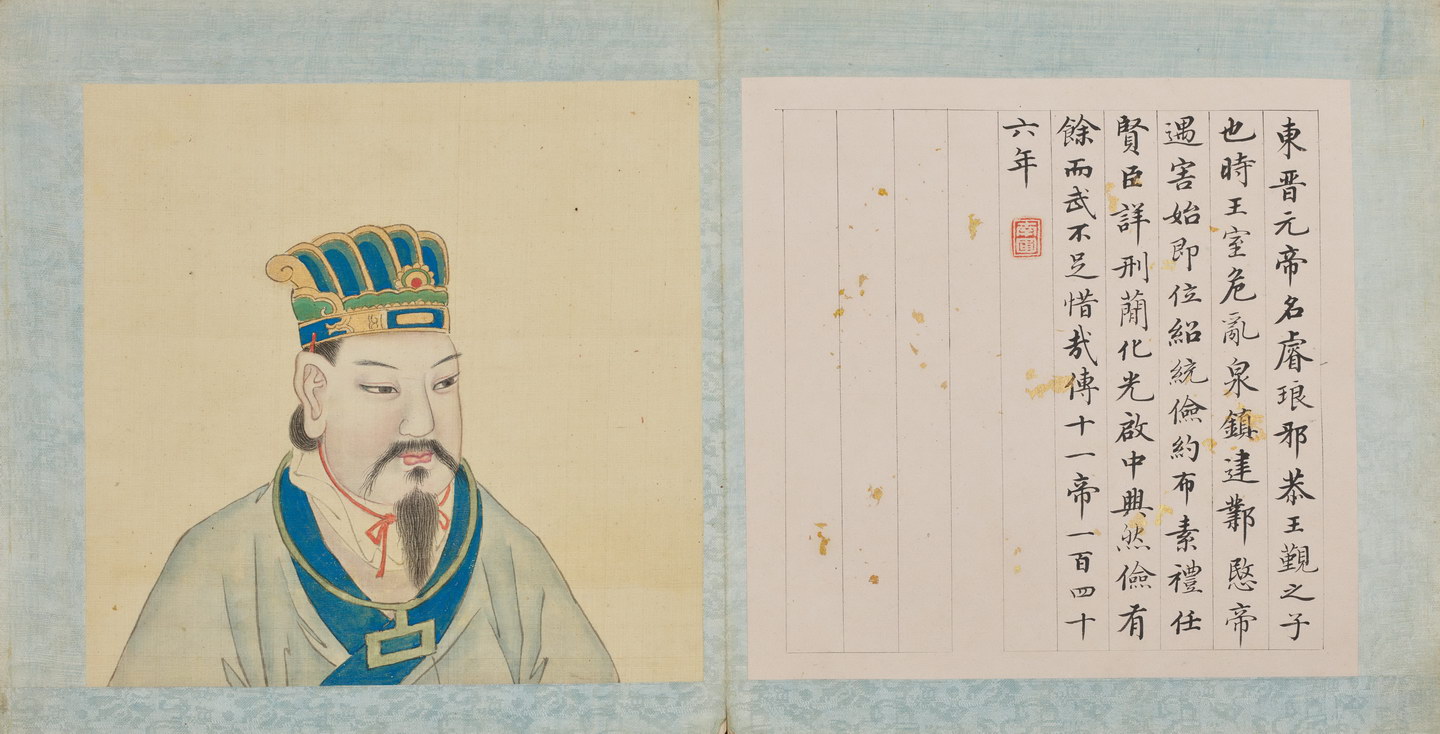 東晋元帝名睿琅邪恭王覲之子
也時王室危亂泉鎮建鄴愍帝
遇害始即位紹統儉約布素禮任
賢臣詳刑蕳化光啟中興然儉有
餘而武不足惜哉傳十一帝一百四十
六年